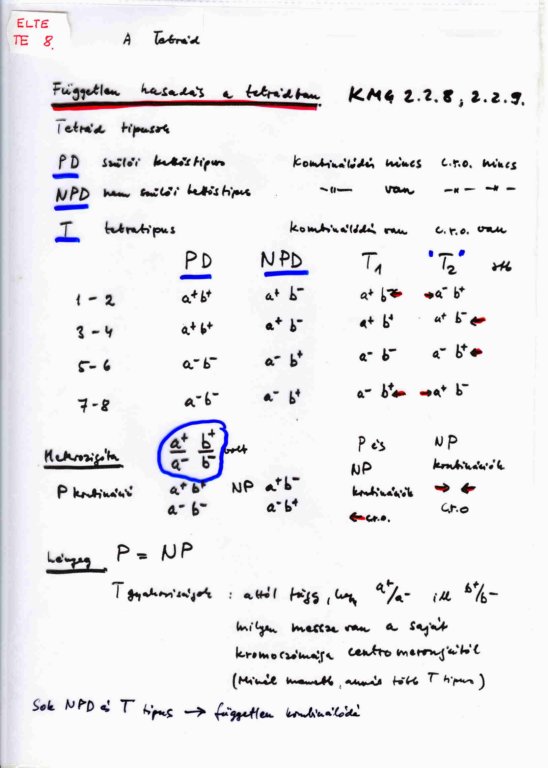 ELTE
TE 8.
A Tetrád
Független hasadás a tetrádban. KMG 2.2.8, 2.2.9.
Tetrád típusok
PD szülői kettőstípus kombinálódás nincs c.r.o. nincs
NPD nem szülői kettőstípus -"- van -"- -"-
T tetratípus kombinálódás van c.r.o. van
PD NPD T1 "T2" stb
1-2 a+b+ a+ b- a+ b-← →a- b+
3-4 a+b+ a+ b- a+ b+ a+ b-←
5-6 a-b- a- b+ a- b- a- b+←
7-8 a-b- a- b+ a- b+← →a+ b-
Heterozigóta a+/a- b+/b- volt P és NP
NP kombinációk
P kombináció a+ b+ NP a+ b- kombinációk → ←
a- b- a- b+ ← c.r.o. c.r.o
Lényeg P = NP
T gyakoriságok : attól függ, hogy a+/a- ill b+/b-
milyen messze van a saját
kromoszómája centromeronjától
(Minél messzebb, annál több T típus)
Sok NPD és T típus → független kombinálódás